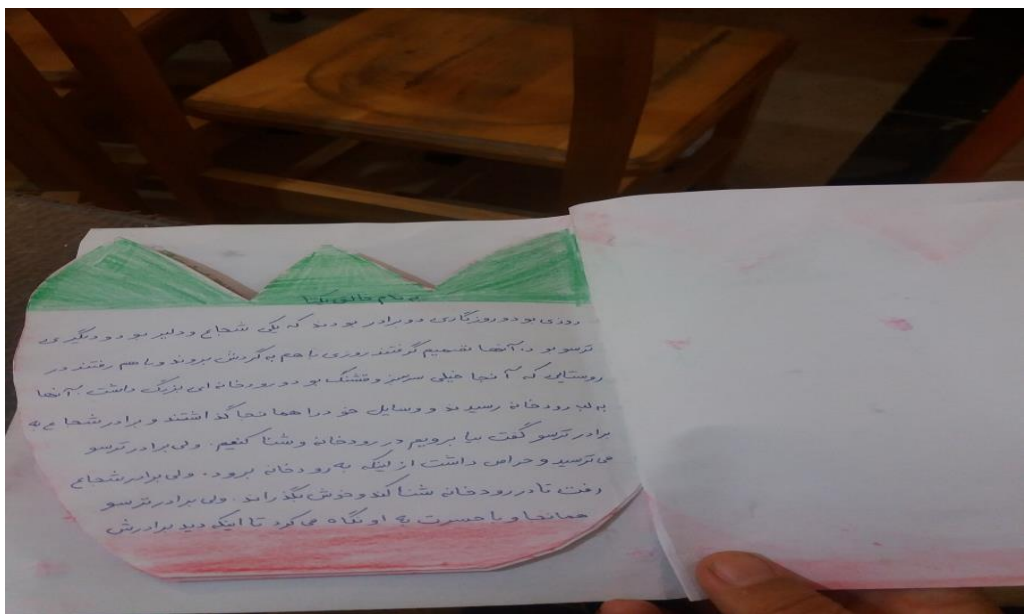 به نام خالق یکتا
روزی بود و روزگاری دو برادر بودند که یکی شجاع و دلیر بود و دیگری
ترسو بود. آنها تصمیم گرفتند روزی با هم به گردش بروند و با هم رفتند در
روستایی که آنجا خیلی سرسبز و قشنگ بود و رودخانه ای بزرگ داشت. آنها
به لب رودخانه رسیدند و وسایل خود را همانجا گذاشتند و برادر شجاع به
برادر ترسو گفت بیا برویم در رودخانه و شنا کنیم. ولی برادر ترسو
می ترسید و حراص داشت از اینکه به رودخانه برود. ولی برادر شجاع
رفت تا در رودخانه شنا کند و خوش بگذراند. ولی برادر ترسو
همانجا و با حسرت به او نگاه می کرد تا اینکه دید برادرش